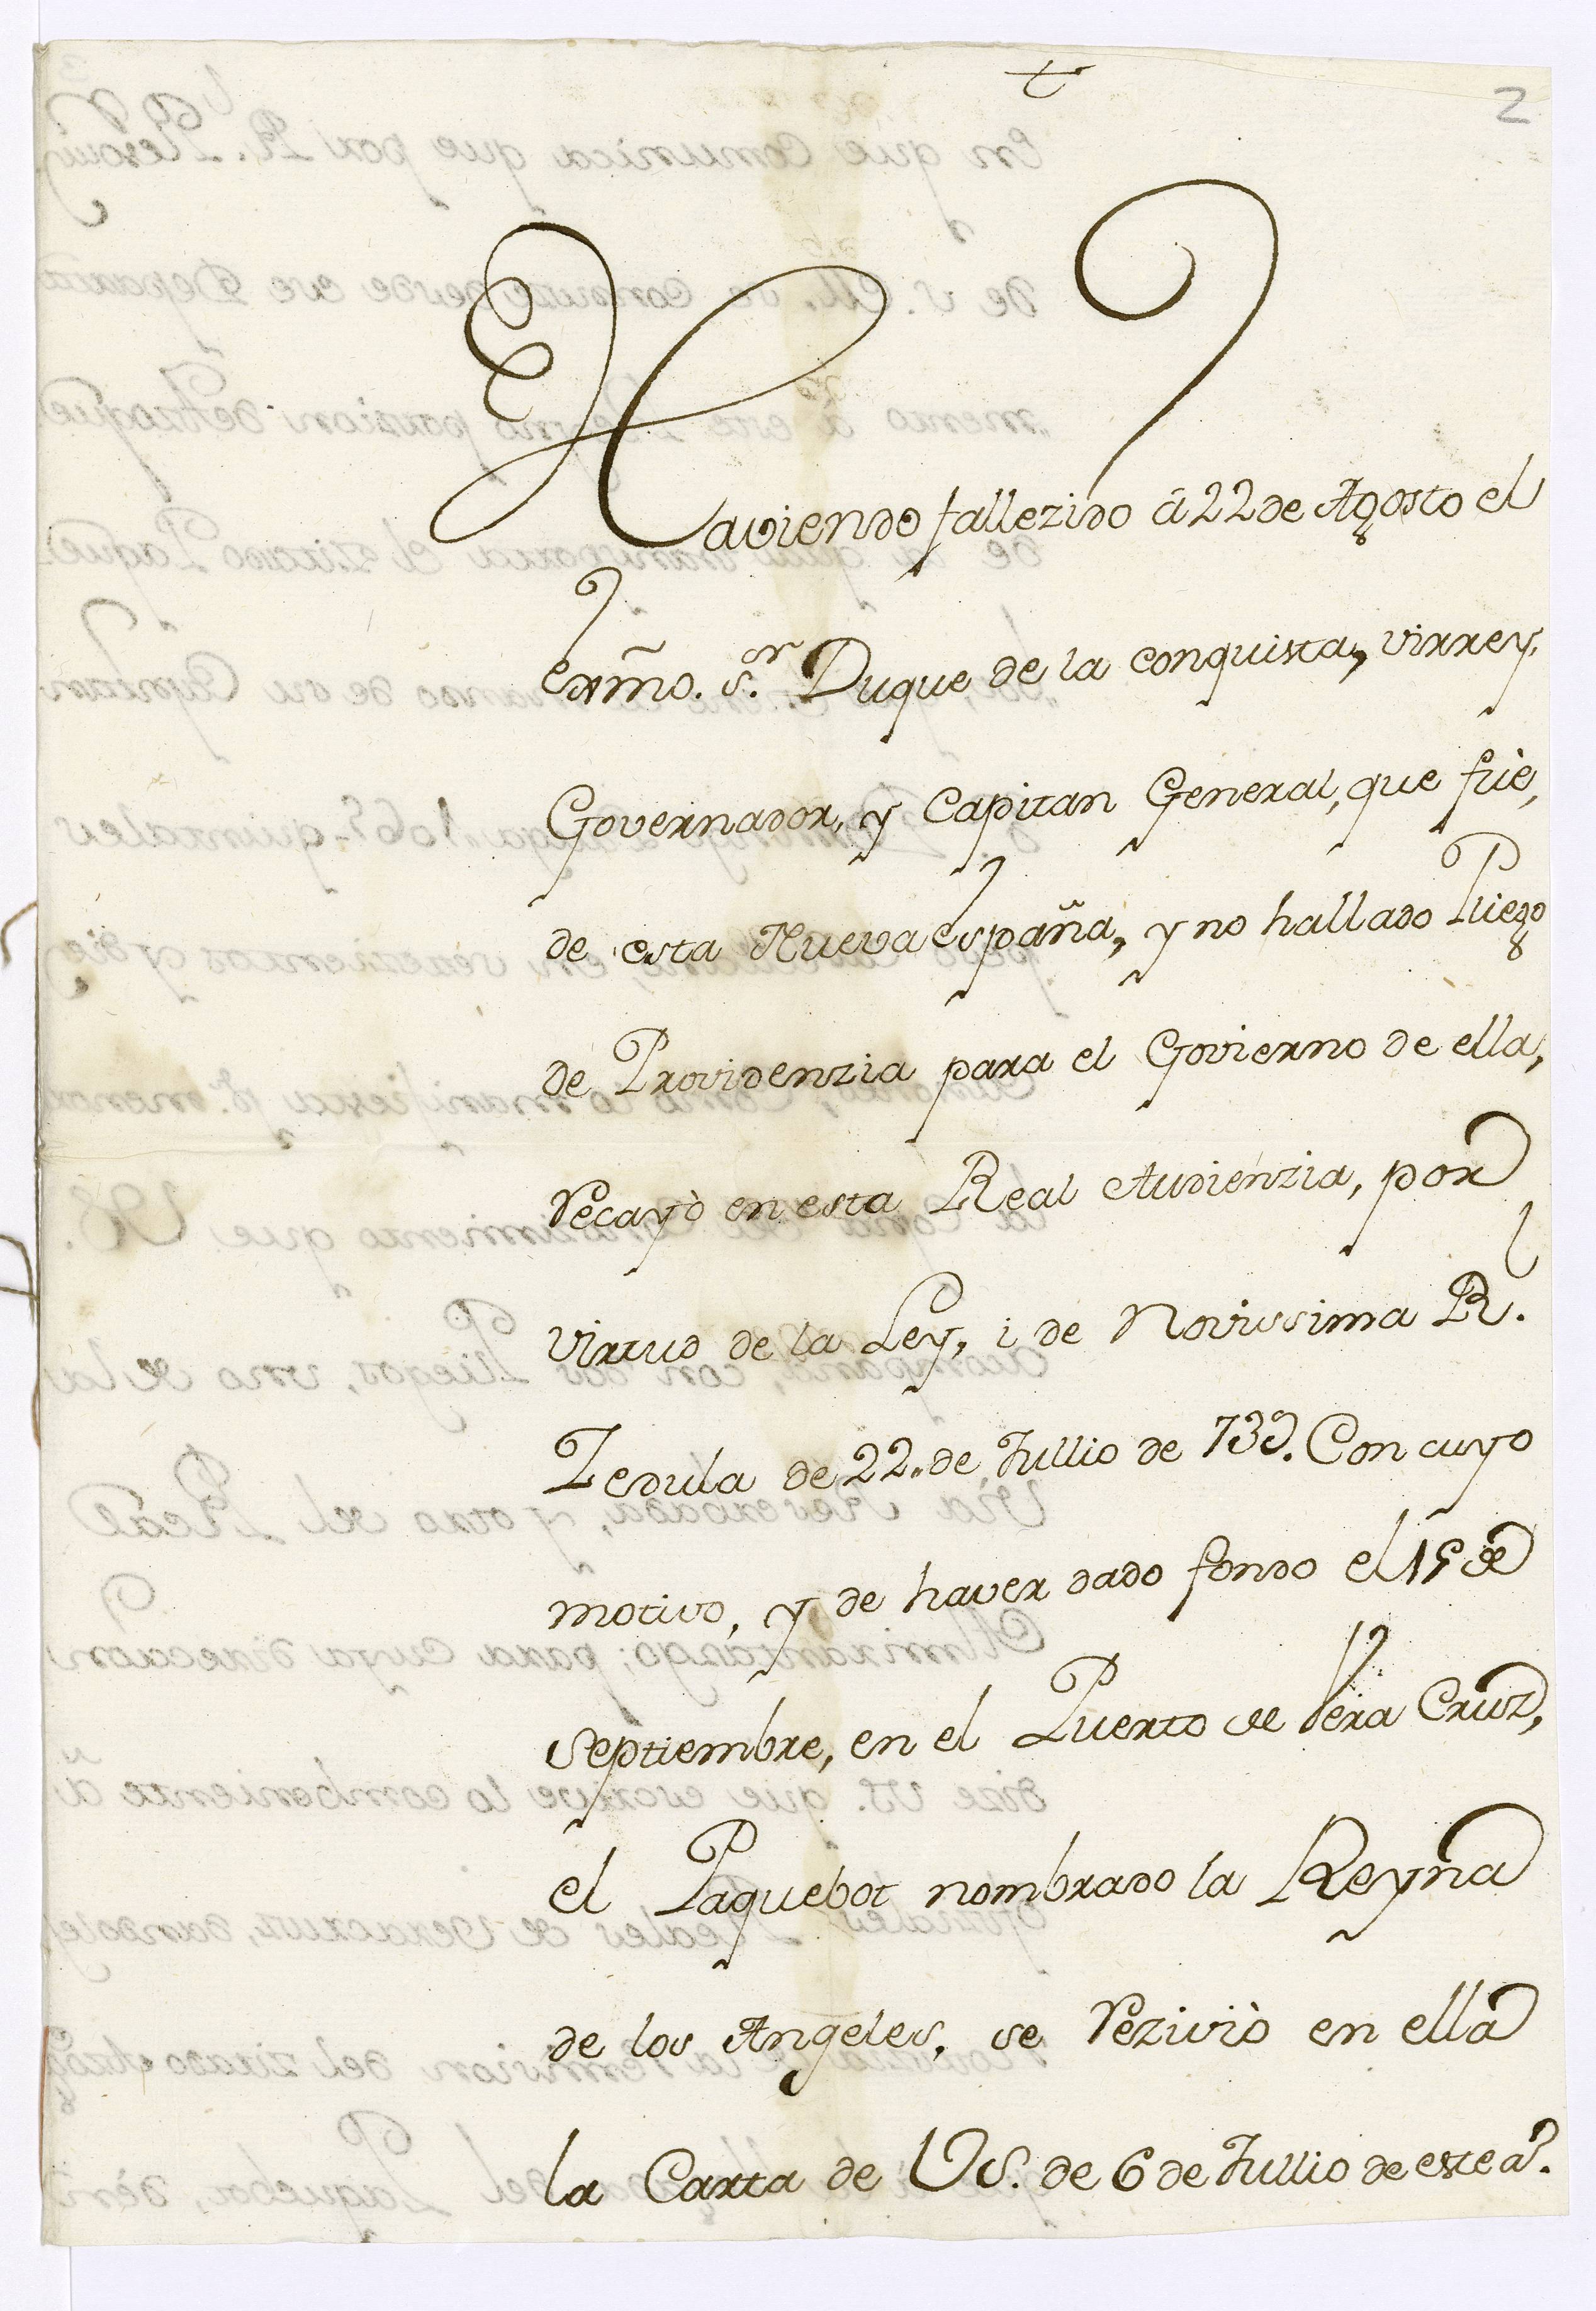 2
Haviendo fallezido à 22 de Agosto el
exmo. s.or Duque de la conquista, virrey,
Governador, y Capitan General, que fuè,
de esta Nueva españa, y no hallado Pliego
de Providenzia para el Govierno de ella,
recayò en esta Real Audienzia, por
virtud de la Ley, i de Novissima Rl.
Zedula de 22,, de Jullio de 739. Con cuyo
motivo, y de haver dado fondo el 15 de
septiembre, en el Puerto de Vera Cruz,
el Paquebot nombrado la Reyna
de los Angeles, se rezivìò en ella
la Carta de VS. de 6 de Jullio de este a.o